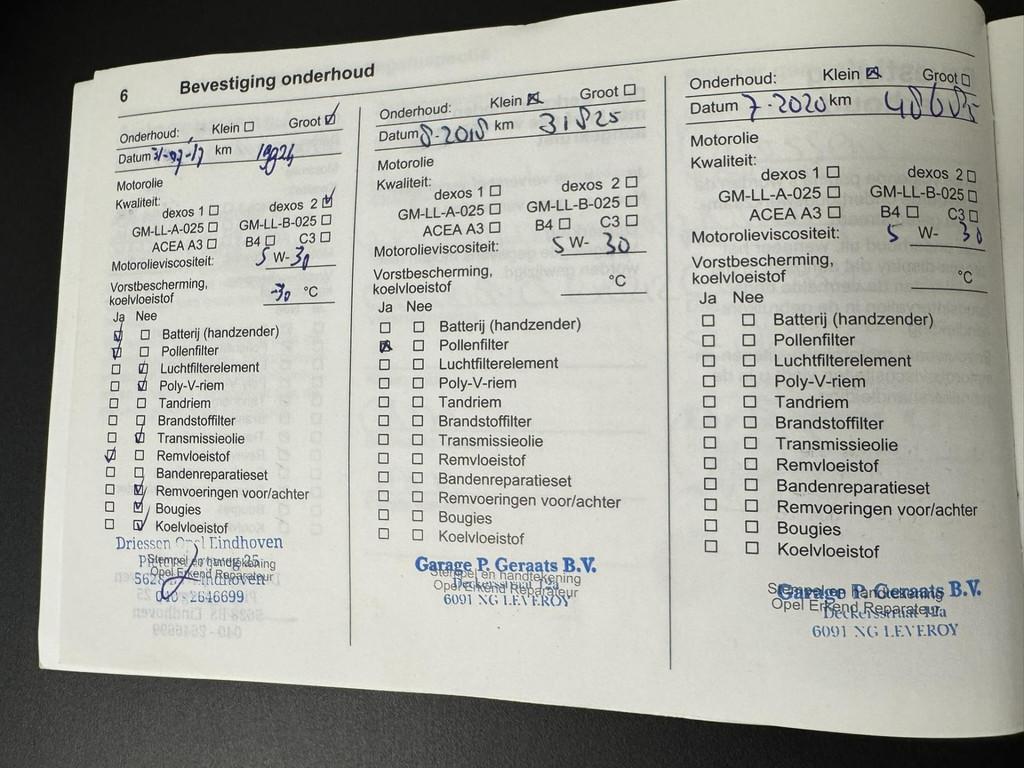 6 Bevestiging onderhoud
Onderhoud: Klein Groot
Datum 31-07-17 km
Motorolie
Kwaliteit:
dexos 1 dexos 2
GM-LL-A-025 GM-LL-B-025
ACEA A3 B4 C3
Motorolieviscositeit: 5 W- 30
Vorstbescherming,
koelvloeistof -30 °C
Ja Nee
Batterij (handzender)
Pollenfilter
Luchtfilterelement
Poly-V-riem
Tandriem
Brandstoffilter
Transmissieolie
Remvloeistof
Bandenreparatieset
Remvoeringen voor/achter
Bougies
Koelvloeistof
Driessen Opel Eindhoven
Stempel en handtekening
Opel Erkend Reparateur
Eindhoven
040 - 2646699
Onderhoud: Klein Groot
Datum 8-2018 km 31825
Motorolie
Kwaliteit:
dexos 1 dexos 2
GM-LL-A-025 GM-LL-B-025
ACEA A3 B4 C3
Motorolieviscositeit: 5 W- 30
Vorstbescherming,
koelvloeistof °C
Ja Nee
Batterij (handzender)
Pollenfilter
Luchtfilterelement
Poly-V-riem
Tandriem
Brandstoffilter
Transmissieolie
Remvloeistof
Bandenreparatieset
Remvoeringen voor/achter
Bougies
Koelvloeistof
Garage P. Geraats B.V.
Stempel en handtekening
Deckersstraat 12a
Opel Erkend Reparateur
6091 NG LEVEROY
Onderhoud: Klein Groot
Datum 7-2020 km 48685
Motorolie
Kwaliteit:
dexos 1 dexos 2
GM-LL-A-025 GM-LL-B-025
ACEA A3 B4 C3
Motorolieviscositeit: 5 W- 30
Vorstbescherming,
koelvloeistof °C
Ja Nee
Batterij (handzender)
Pollenfilter
Luchtfilterelement
Poly-V-riem
Tandriem
Brandstoffilter
Transmissieolie
Remvloeistof
Bandenreparatieset
Remvoeringen voor/achter
Bougies
Koelvloeistof
Garage P. Geraats B.V.
Stempel en handtekening
Opel Erkend Reparateur
Deckersstraat 12a
6091 NG LEVEROY